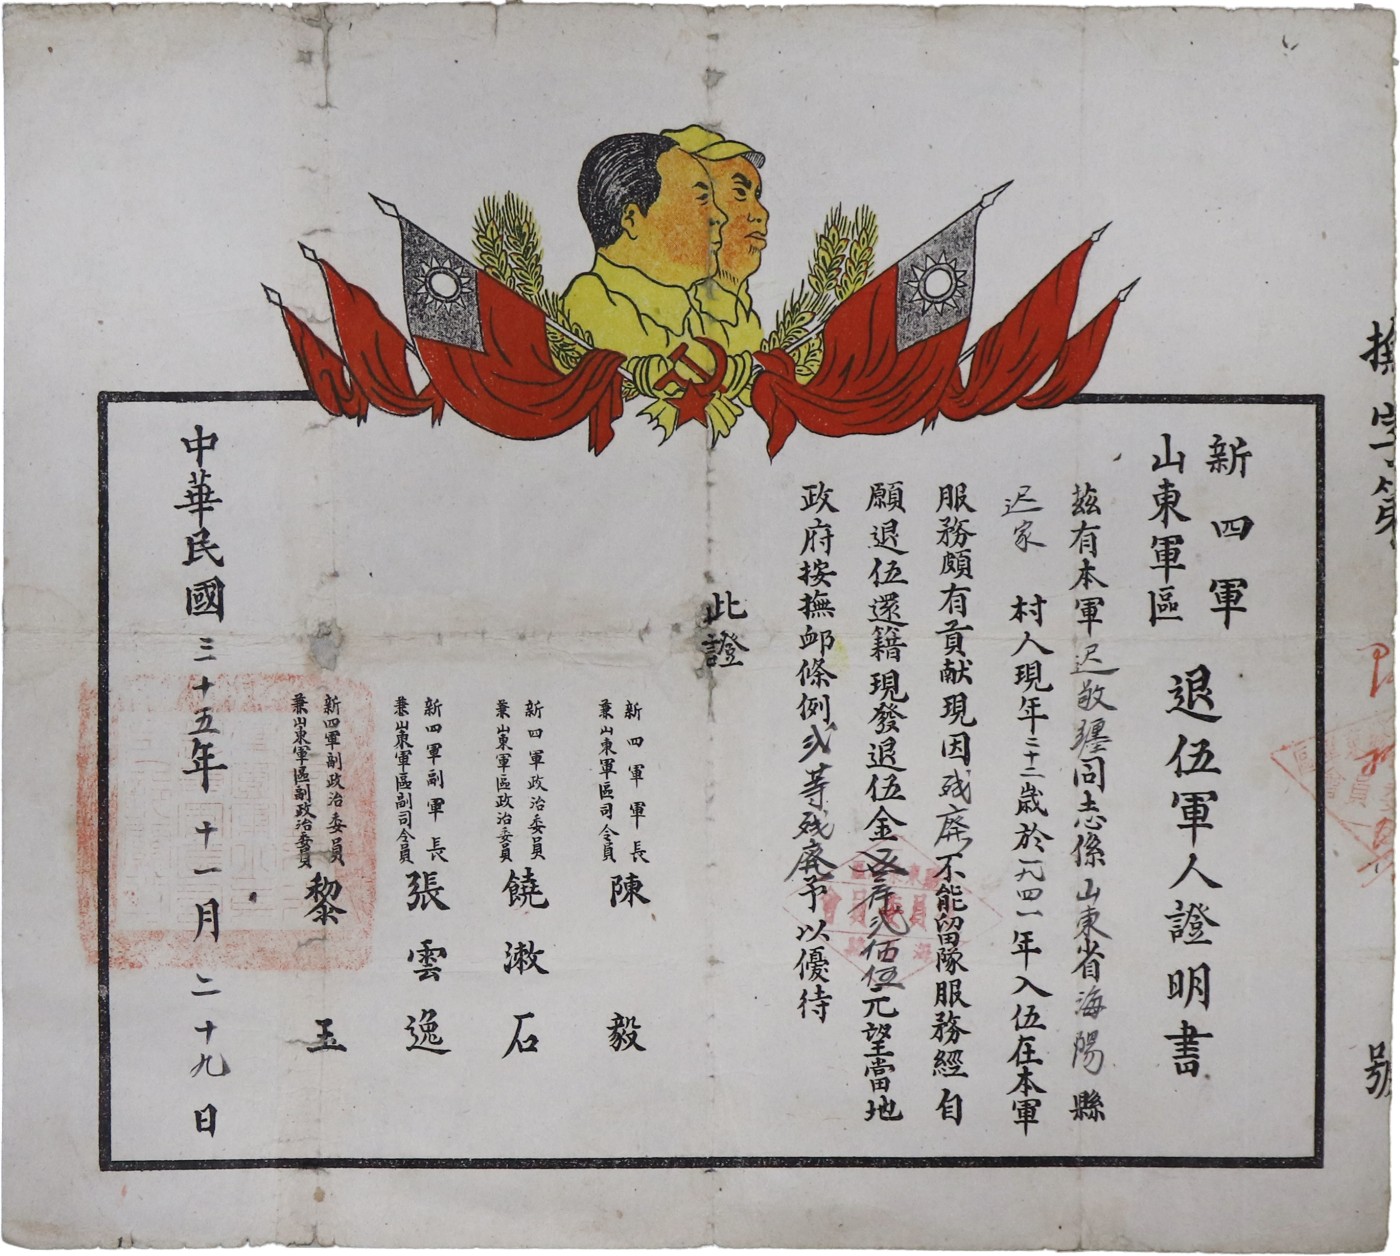 新四軍
山東軍區
退伍軍人證明書
茲有本軍迟敬纏同志係山東省海陽縣
迟家 村人現年三十二歲於一九四一年入伍在本軍
服務頗有貢献現因残廃不能留隊服務經自
願退伍還籍現發退伍金 仟弍佰伍元望當地
政府按撫卹條例弍等残廃予以優待
此證
新四軍軍長
兼山東軍區司令員
陳毅
新四軍政治委員
兼山東軍區政治委員
饒漱石
新四軍副軍長
兼山東軍區副司令員
張雲逸
新四軍副政治委員
兼山東軍區副政治委員
黎玉
中華民國三十五年十一月二十九日
字第
號